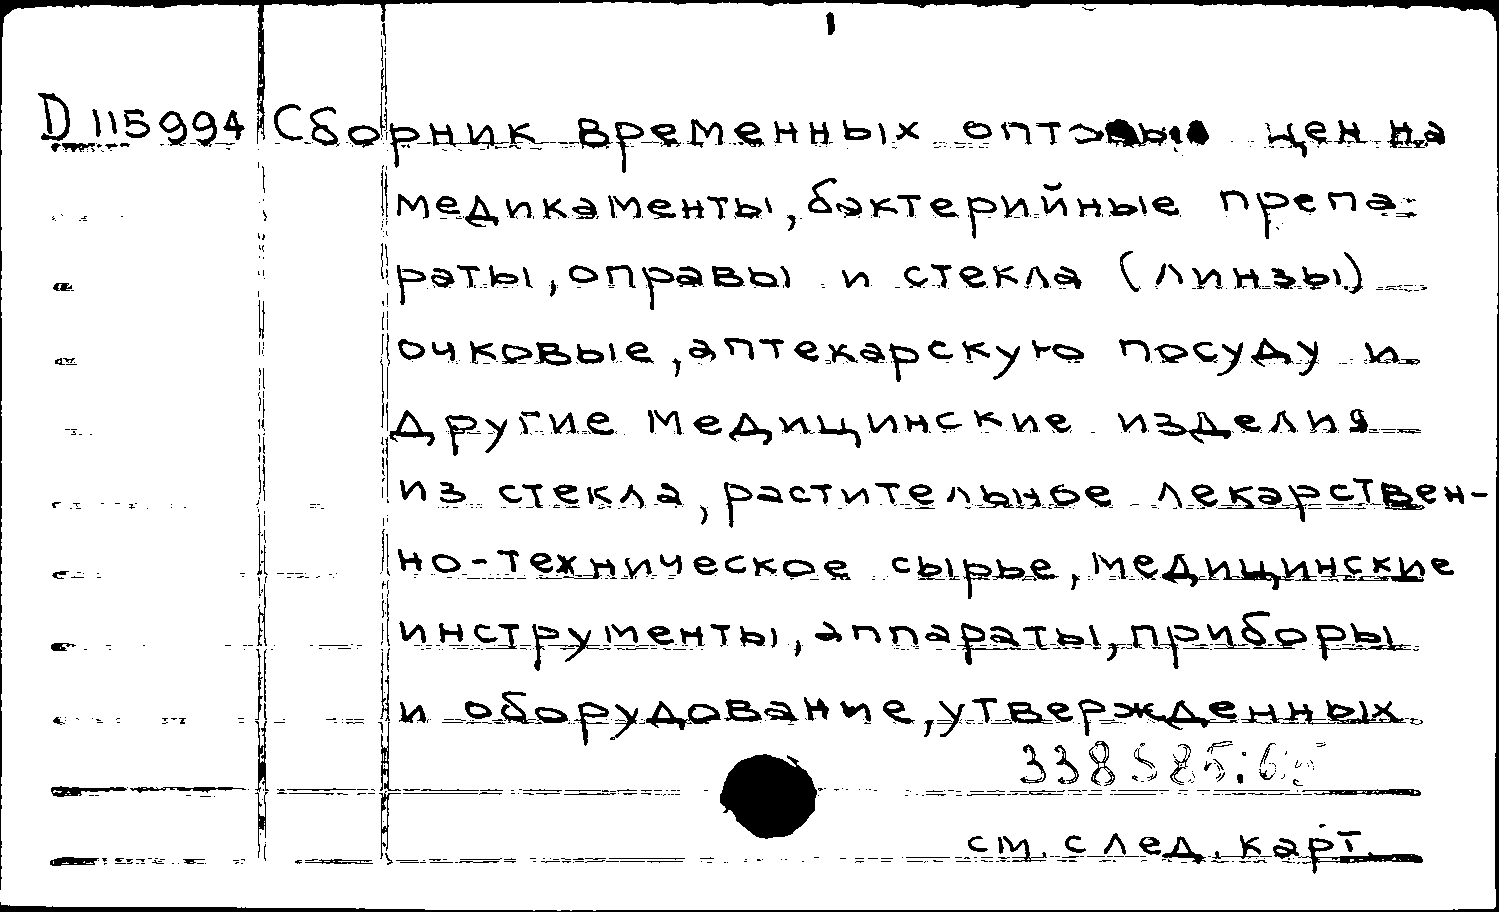 1
D 115994 Сборник временных оптовых цен на
медикаменты, бактерийные препа-
раты, оправы и стекла (линзы)
очковые, аптекарскую посуду и
другие медицинские изделия
из стекла, растительное лекарствен-
но-техническое сырье, медицинские
инструменты, аппараты, приборы
и оборудование, утвержденных
см. след. карт.